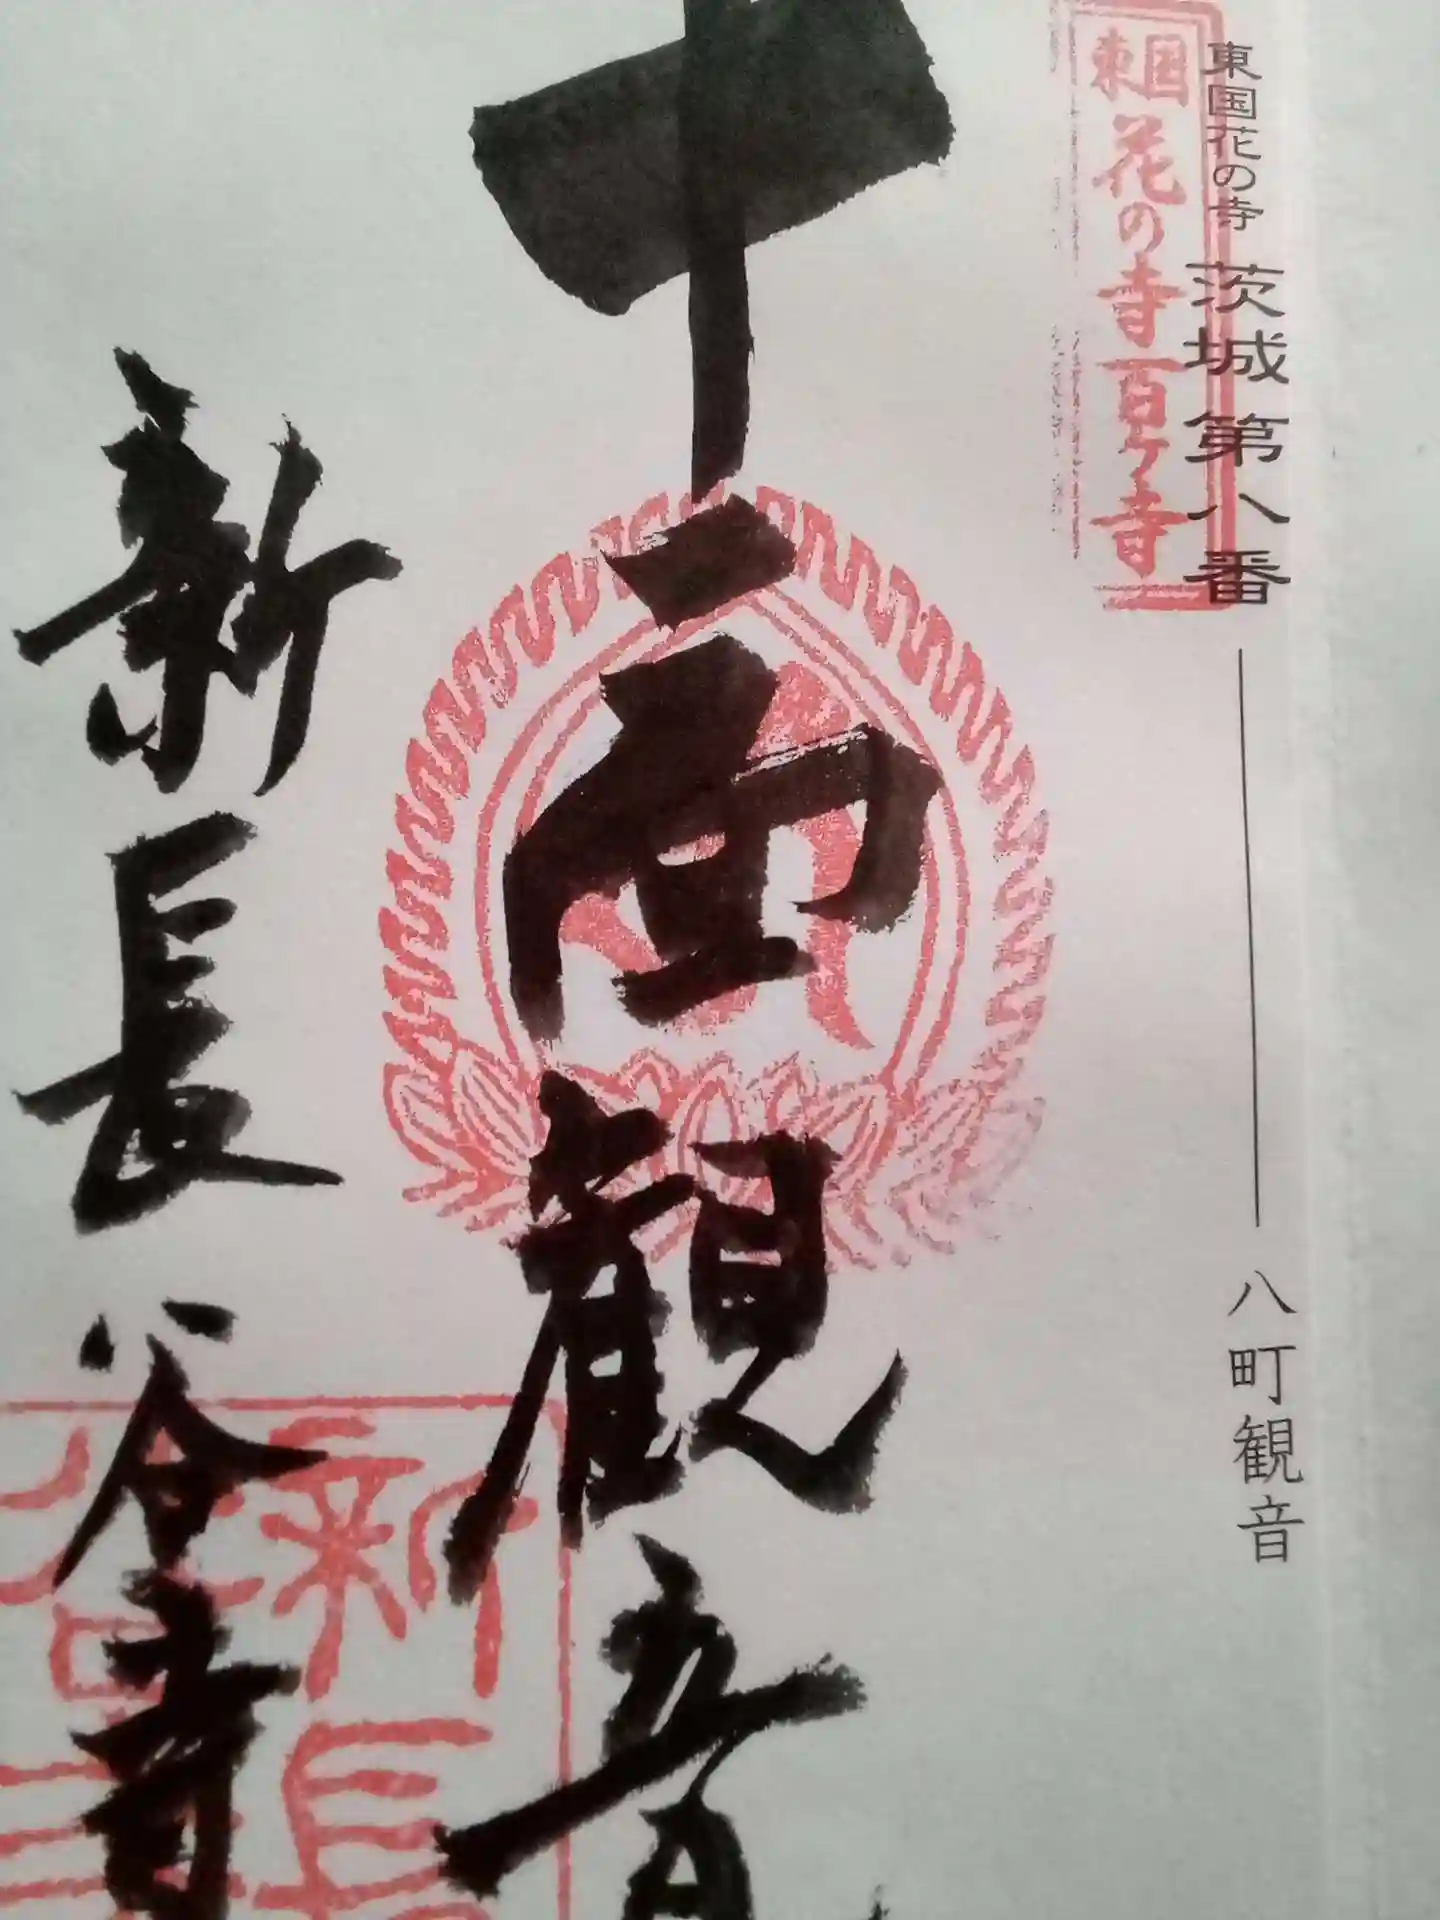 東国花の寺 茨城第八番 ― 八町観音
東国
花の寺百ヶ寺
十一面観音
新長谷寺
新長
谷寺